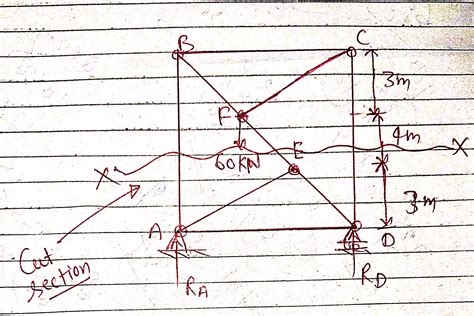 B
C
3m
F
4m
60KN
E
X
X
3m
A
D
Cut
section
RA
RD